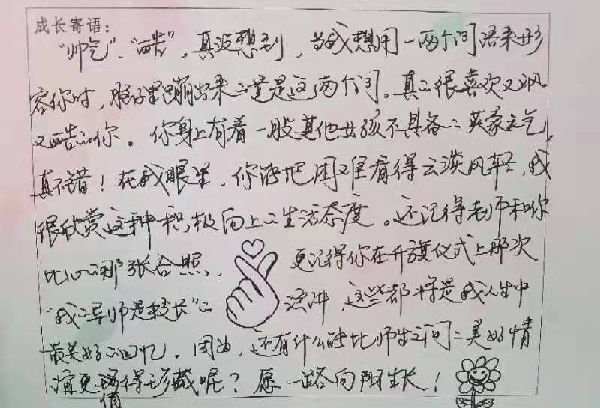 成长寄语：
“帅气”、“酷”，真没想到，当我想用一两个词语来形
容你时，脑子里蹦出来的竟是这两个词。真的很喜欢又飒
又酷的你。你身上有着一股其他女孩不具备的英豪之气，
真不错！在我眼里，你能把困难看得云淡风轻，我
很欣赏这种积极向上的生活态度。还记得老师和你
比心的那张合照，更记得你在升旗仪式上那次
“我的导师是校长”的演讲，这些都将是我人生中
最美好的回忆，因为，还有什么能比师生之间的美好情
谊更值得珍藏呢？愿一路向阳生长！